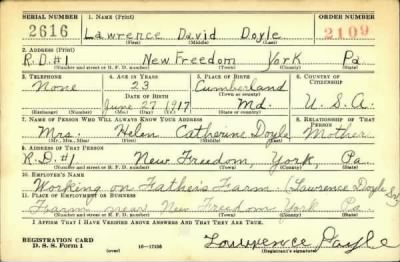 SERIAL NUMBER 1. NAME (Print) ORDER NUMBER
2616 Lawrence David Doyle 2109
(First) (Middle) (Last)
2. ADDRESS (Print)
R.D. #1 New Freedom York Pa.
(Number and street or R. F. D. number) (Town) (County) (State)
3. TELEPHONE 4. AGE IN YEARS 5. PLACE OF BIRTH 6. COUNTRY OF CITIZENSHIP
None 23 Cumberland
DATE OF BIRTH (Town or county)
June 27 1917 Md. U.S.A.
(Exchange) (Number) (Mo.) (Day) (Yr.) (State or country)
7. NAME OF PERSON WHO WILL ALWAYS KNOW YOUR ADDRESS 8. RELATIONSHIP OF THAT PERSON
Mrs. Helen Catherine Doyle Mother
(Mr., Mrs., Miss) (First) (Middle) (Last)
9. ADDRESS OF THAT PERSON
R.D. #1 New Freedom, York, Pa.
(Number and street or R. F. D. number) (Town) (County) (State)
10. EMPLOYER'S NAME
Working on Father's Farm. (Lawrence Doyle
11. PLACE OF EMPLOYMENT OR BUSINESS
Farm near New Freedom York Pa.
(Number and street or R. F. D. number) (Town) (County) (State)
I AFFIRM THAT I HAVE VERIFIED ABOVE ANSWERS AND THAT THEY ARE TRUE.
REGISTRATION CARD
D. S. S. Form 1 (over) 16—17105 Lawrence Doyle
(Registrant's signature)